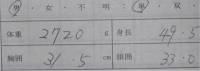 男・女・不明 単・双
体重 2720 g 身長 49.5
胸囲 31.5 cm 頭囲 33.0